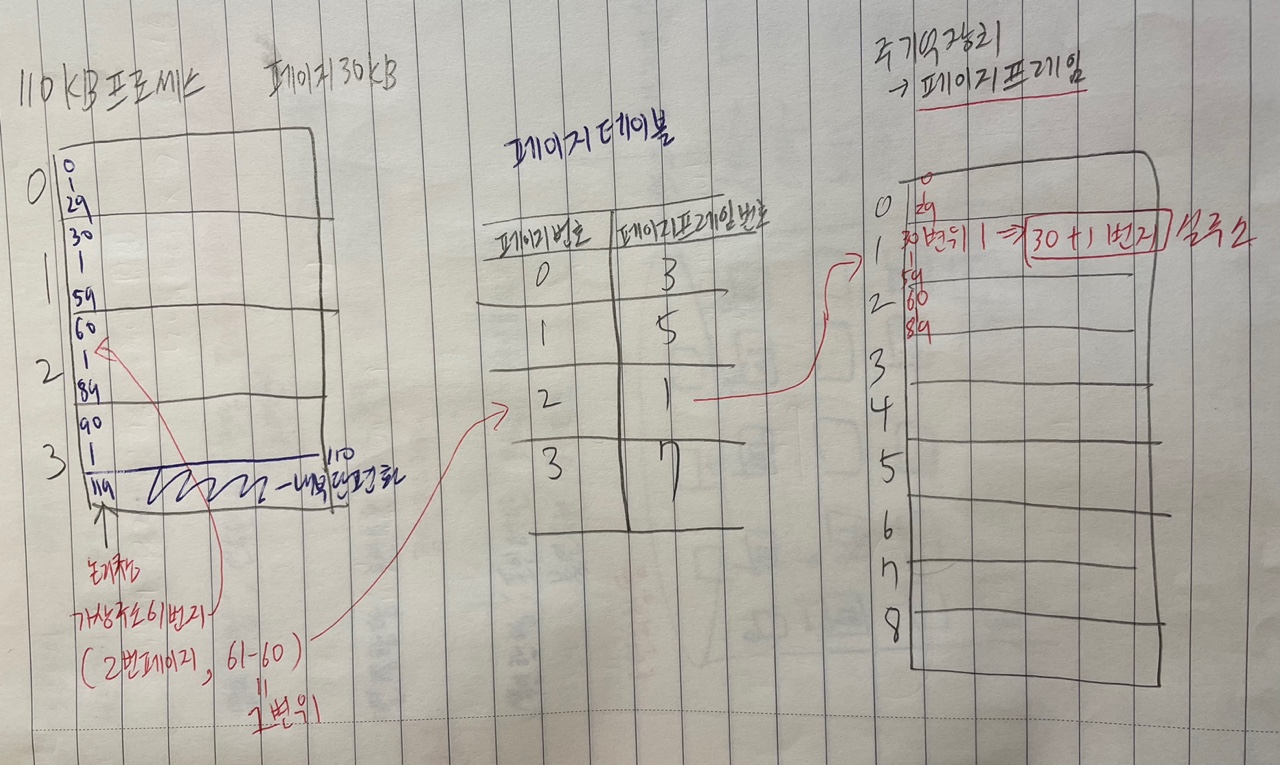 110KB프로세스 페이지30KB
0
0
29
1
30
59
2
60
89
3
90
119
110
내부단편화
가상주소61번지
(2번페이지, 61-60)
변위
페이지테이블
페이지번호 페이지프레임번호
0 3
1 5
2 1
3 7
주기억장치
→ 페이지프레임
0
0
29
1
30 변위 1 ⇒ 30+1번지 실주소
59
2
60
89
3
4
5
6
7
8